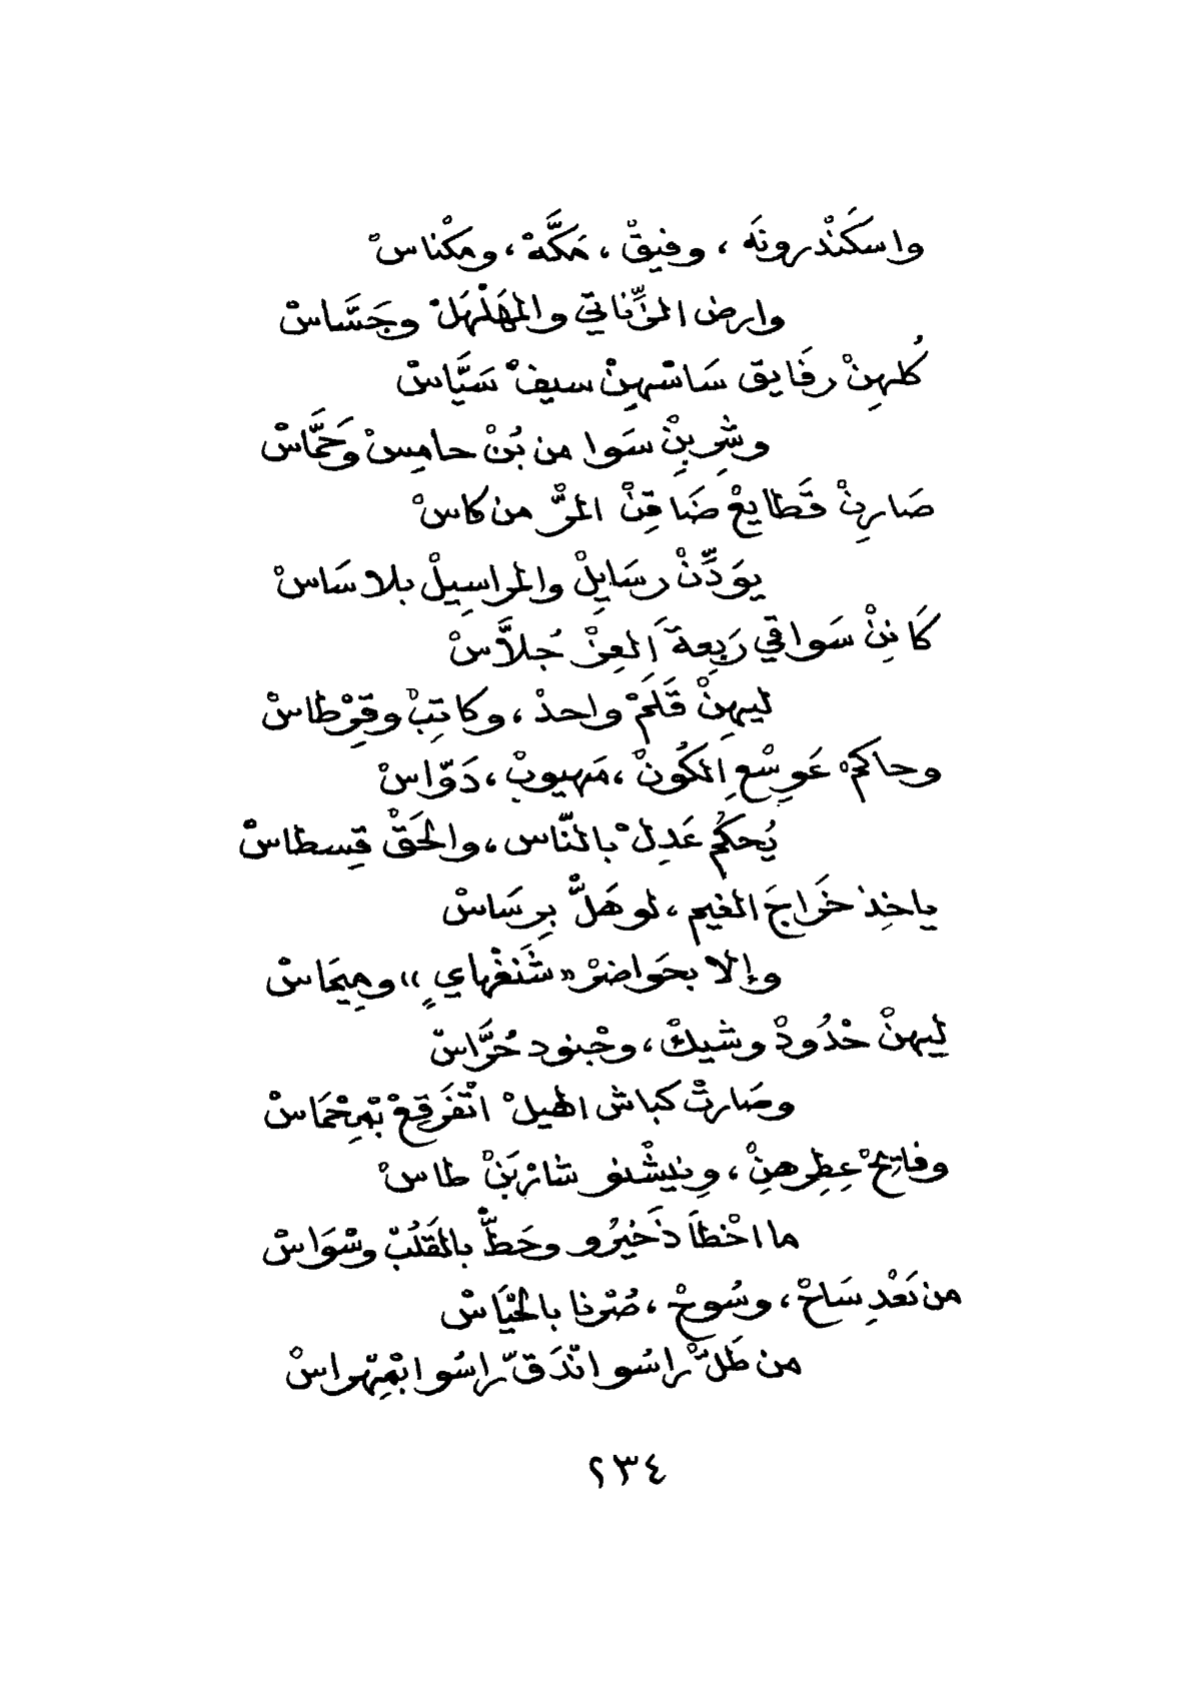 واسكَنْدرونَه ، وفيقْ ، مَكَّهْ ، ومِكْناسْ
وارض الزِّناتي والمهَلْهَلْ وجَسَّاسْ
كُلهِنْ رفَايق سَاسْهِنْ سيفْ سَيَّاسْ
وشِربِنْ سَوا من بُنْ حامِسْ وَحَمَّاسْ
صَارِنْ قَطايعْ ضَاقِنْ المرّ من كاسْ
يوَدِّنْ رسَايِلْ والمراسِيلْ بلا سَاسْ
كَانِنْ سَواقي رَبِعةَ العِزْ جُلاَّسْ
ليهِنْ قَلَمْ واحدْ ، وكاتِبْ وقِرْطاسْ
وحاكمْ عَوِسْعِ الكُونْ ، مَهيوبْ ، دَوّاسْ
يُحكُم عَدِلْ بالنّاس ، والحَقّْ قِسطاسْ
ياخِذ خَراجَ الغيم ، لو هَلّْ بِرسَاسْ
وإلا بحَواضرْ « شَنغْهاي » وميمَاسْ
ليهنْ حْدُودْ وشيكْ ، وجْنود حُرَّاسْ
وصَارتْ كباش الهيلْ اتْفَرقِعْ بْمِحْمَاسْ
وفاتِحْ عِطِرهِنْ ، ونيشْنو شارْبَنْ طاسْ
ما اخْطاَ ذَخيرُو وحَطّْ بالقَلُبْ وسْوَاسْ
من بَعْدِ سَاحْ ، وسُوحْ ، صُرْنا بالحْيَاسْ
من طَلّْ راسُو انّدَقّ راسُوا بْمِهْواسْ
٢٣٤